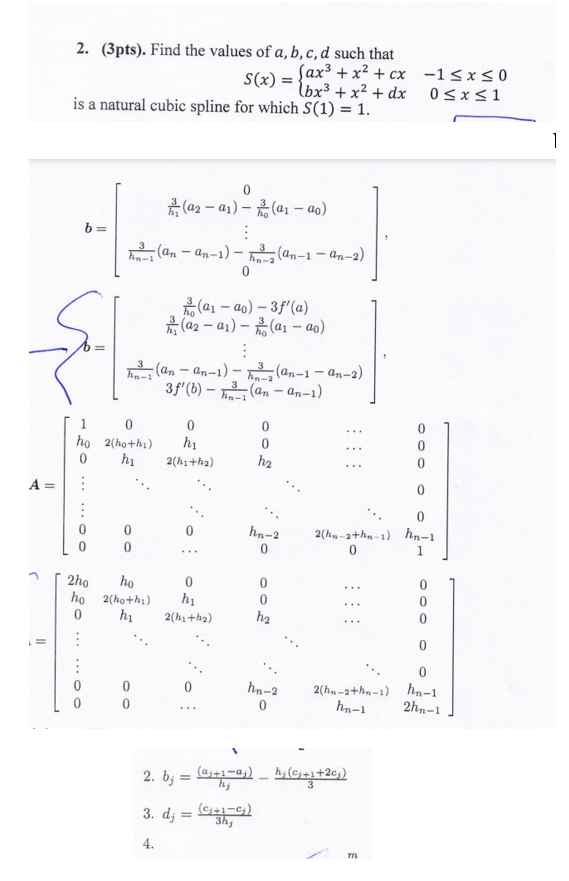 2. (3pts). Find the values of a, b, c, d such that
S(x) = { ax³ + x² + cx −1 ≤ x ≤ 0
bx³ + x² + dx 0 ≤ x ≤ 1
is a natural cubic spline for which S(1) = 1.
0
3/h₁ (a₂ − a₁) − 3/h₀ (a₁ − a₀)
⋮
b = [ ] ,
3/hₙ₋₁ (aₙ − aₙ₋₁) − 3/hₙ₋₂ (aₙ₋₁ − aₙ₋₂)
0
3/h₀ (a₁ − a₀) − 3f′(a)
3/h₁ (a₂ − a₁) − 3/h₀ (a₁ − a₀)
b = [ ⋮ ] ,
3/hₙ₋₁ (aₙ − aₙ₋₁) − 3/hₙ₋₂ (aₙ₋₁ − aₙ₋₂)
3f′(b) − 3/hₙ₋₁ (aₙ − aₙ₋₁)
1 0 0 0 ... 0
h₀ 2(h₀+h₁) h₁ 0 ... 0
0 h₁ 2(h₁+h₂) h₂ ... 0
A = ⋮ ⋱ ⋱ ⋱ 0
⋮ ⋱ ⋱ ⋱ 0
0 0 0 hₙ₋₂ 2(hₙ₋₂+hₙ₋₁) hₙ₋₁
0 0 ... 0 0 1
2h₀ h₀ 0 0 ... 0
h₀ 2(h₀+h₁) h₁ 0 ... 0
0 h₁ 2(h₁+h₂) h₂ ... 0
= ⋮ ⋱ ⋱ ⋱ 0
⋮ ⋱ ⋱ ⋱ 0
0 0 0 hₙ₋₂ 2(hₙ₋₂+hₙ₋₁) hₙ₋₁
0 0 ... 0 hₙ₋₁ 2hₙ₋₁
2. bⱼ = (aⱼ₊₁−aⱼ)/hⱼ − hⱼ(cⱼ₊₁+2cⱼ)/3
3. dⱼ = (cⱼ₊₁−cⱼ)/3hⱼ
4.
m